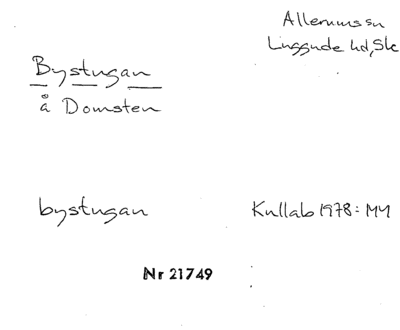 Allerums sn
Luggude hd, Sk
Bystugan
å Domsten
bystugan
Kullab 1978: MM
Nr 21749